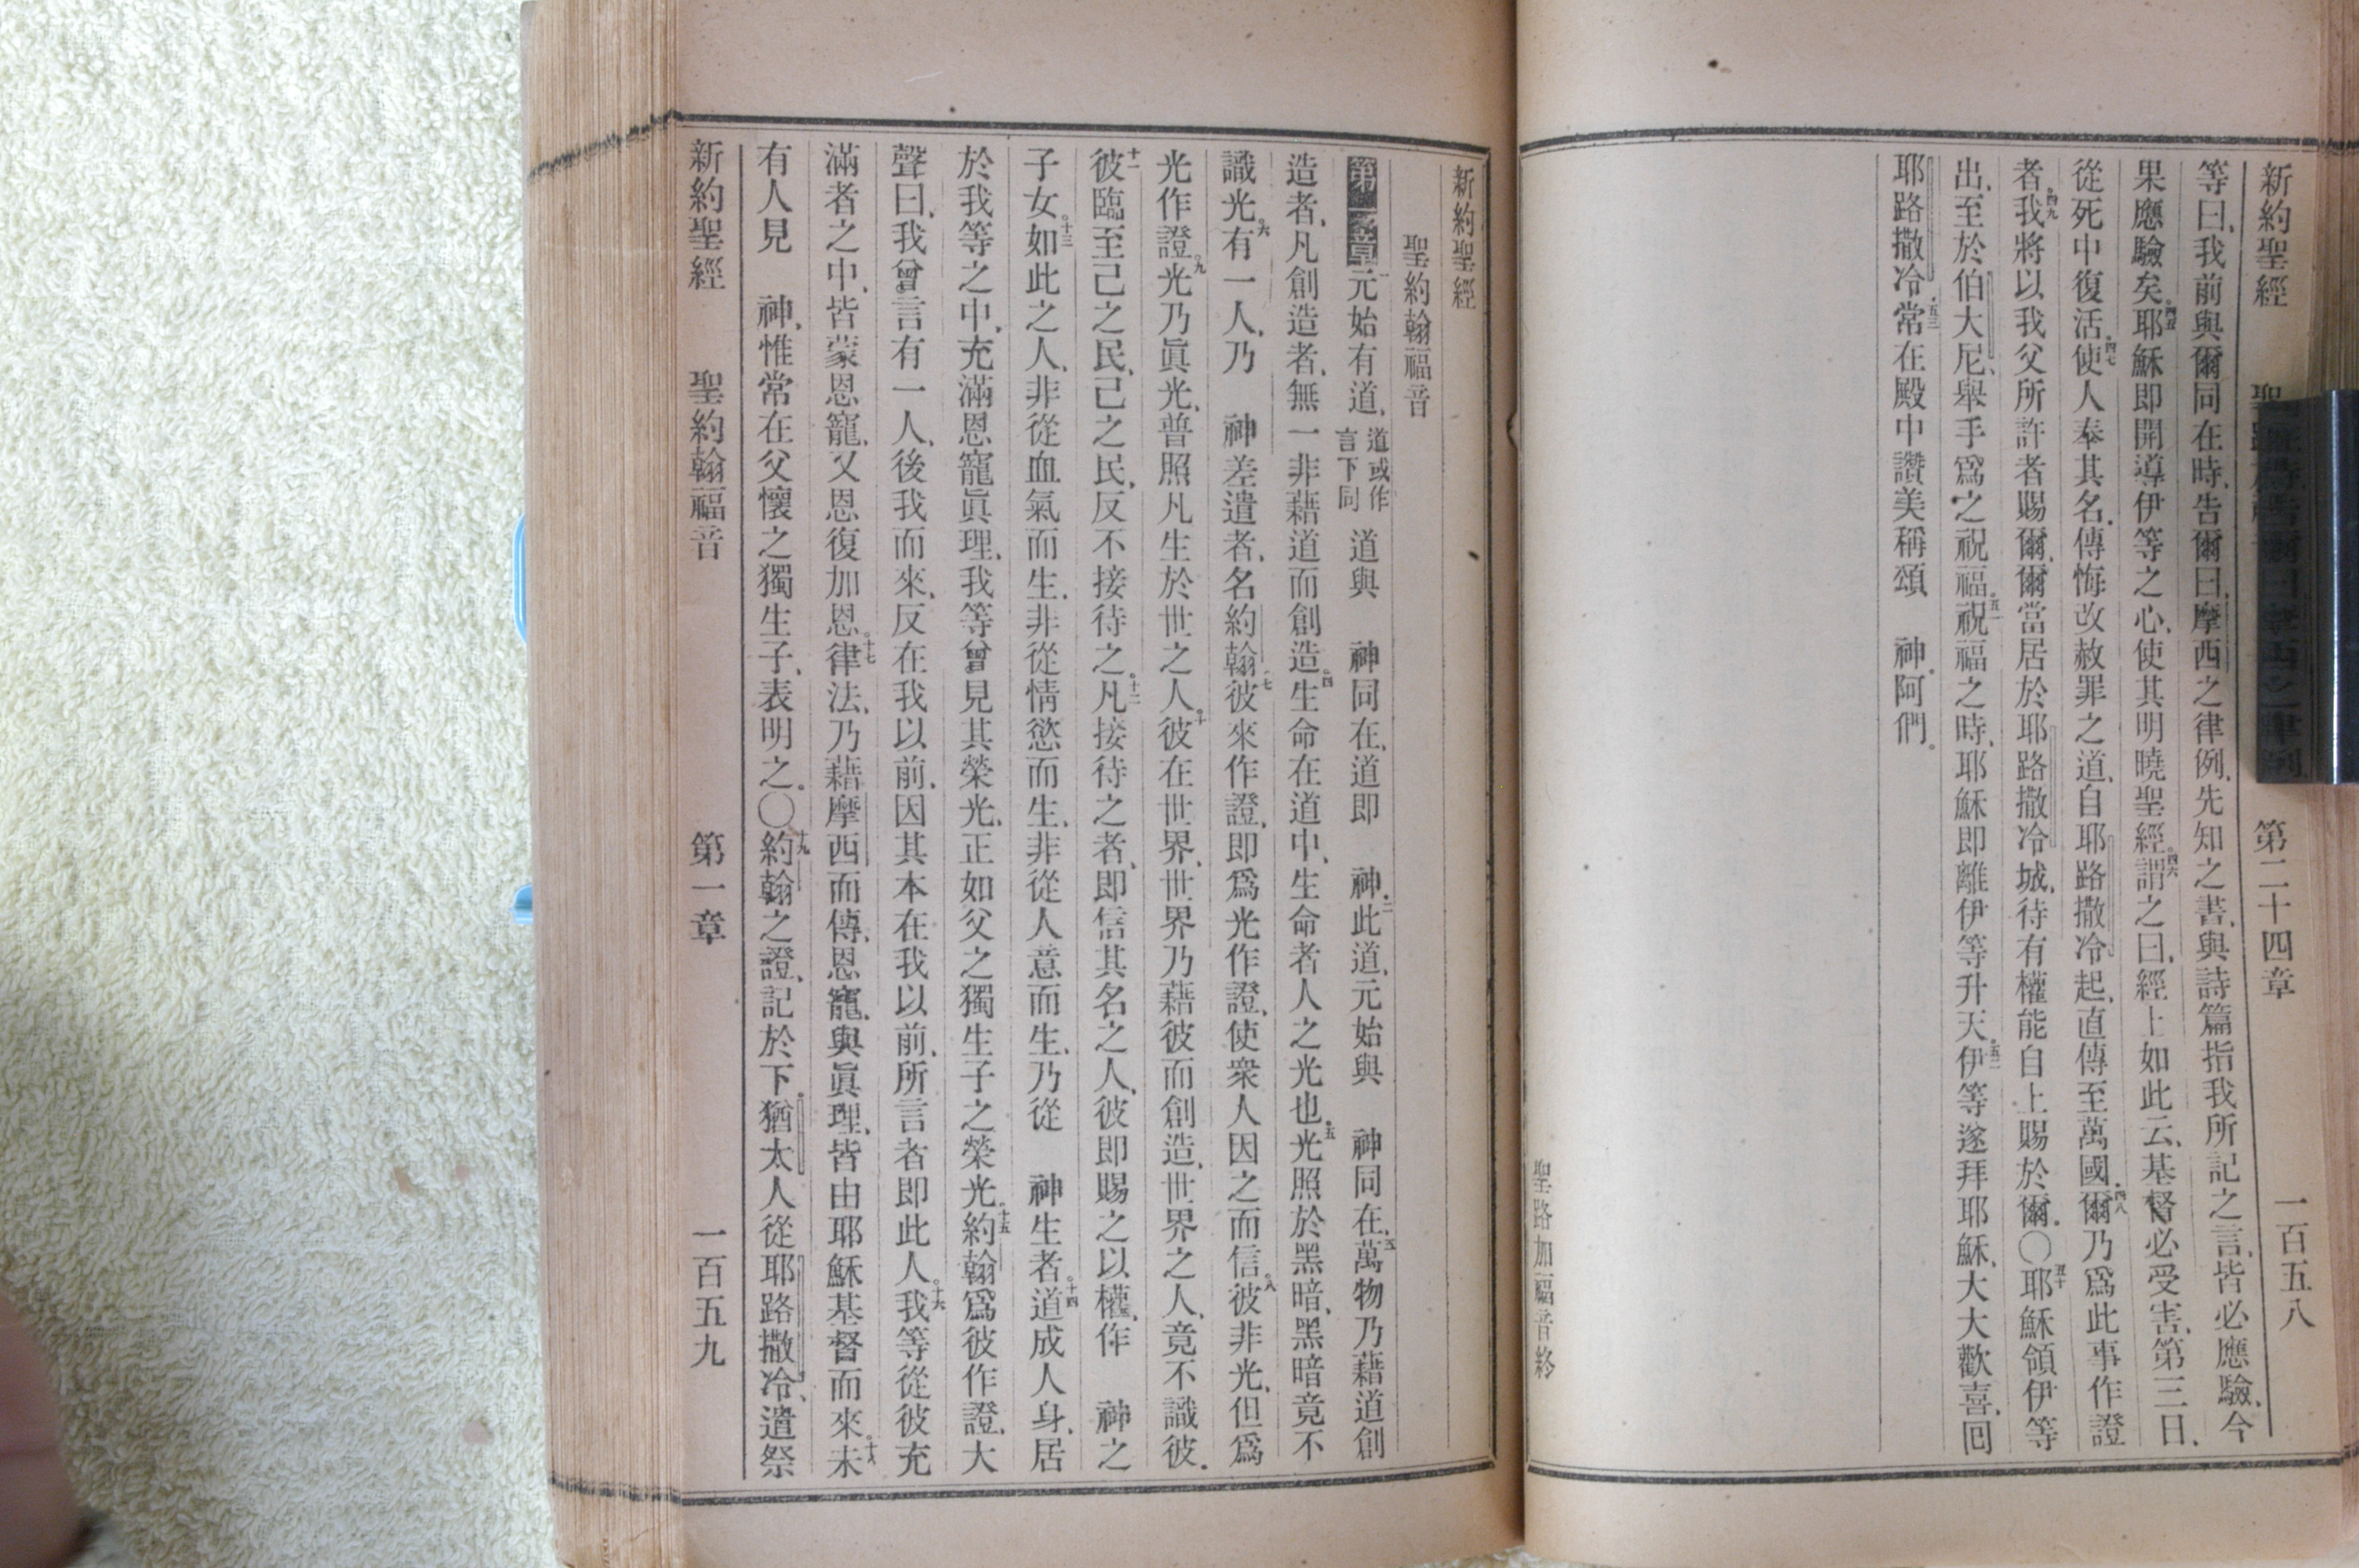 新約聖經 第二十四章 一百五八
等曰、我前與爾同在時、告爾曰、摩西之律例、先知之書、與詩篇指我所記之言、皆必應驗、今
果應驗矣。四五耶穌即開導伊等之心、使其明曉聖經。四六謂之曰、經上如此云、基督必受害、第三日、
從死中復活。四七使人奉其名、傳悔改赦罪之道、自耶路撒冷起、直傳至萬國。四八爾乃爲此事作證
者。四九我將以我父所許者賜爾、爾當居於耶路撒冷城、待有權能自上賜於爾。〇五十耶穌領伊等
出、至於伯大尼、舉手爲之祝福。五一祝福之時、耶穌即離伊等升天。五二伊等遂拜耶穌、大大歡喜、囘
耶路撒冷。五三常在殿中讚美稱頌 神。阿們。
聖路加福音終
新約聖經
聖約翰福音
第一章 一元始有道、道或作言下同 道與 神同在、道即 神。二此道、元始與 神同在。三萬物乃藉道創
造者、凡創造者、無一非藉道而創造。四生命在道中、生命者人之光也。五光照於黑暗、黑暗竟不
識光。六有一人、乃 神差遣者、名約翰。七彼來作證、即爲光作證、使衆人因之而信。八彼非光、但爲
光作證。九光乃眞光、普照凡生於世之人。十彼在世界、世界乃藉彼而創造、世界之人、竟不識彼。
十一彼臨至己之民、己之民、反不接待之。十二凡接待之者、即信其名之人、彼即賜之以權、作 神之
子女。十三如此之人、非從血氣而生、非從情慾而生、非從人意而生、乃從 神生者。十四道成人身、居
於我等之中、充滿恩寵眞理、我等曾見其榮光、正如父之獨生子之榮光。十五約翰爲彼作證、大
聲曰、我曾言有一人、後我而來、反在我以前、因其本在我以前、所言者即此人。十六我等從彼充
滿者之中、皆蒙恩寵、又恩復加恩。十七律法、乃藉摩西而傳、恩寵與眞理、皆由耶穌基督而來。十八未
有人見 神、惟常在父懷之獨生子、表明之。〇十九約翰之證、記於下。猶太人從耶路撒冷、遣祭
新約聖經 聖約翰福音 第一章 一百五九